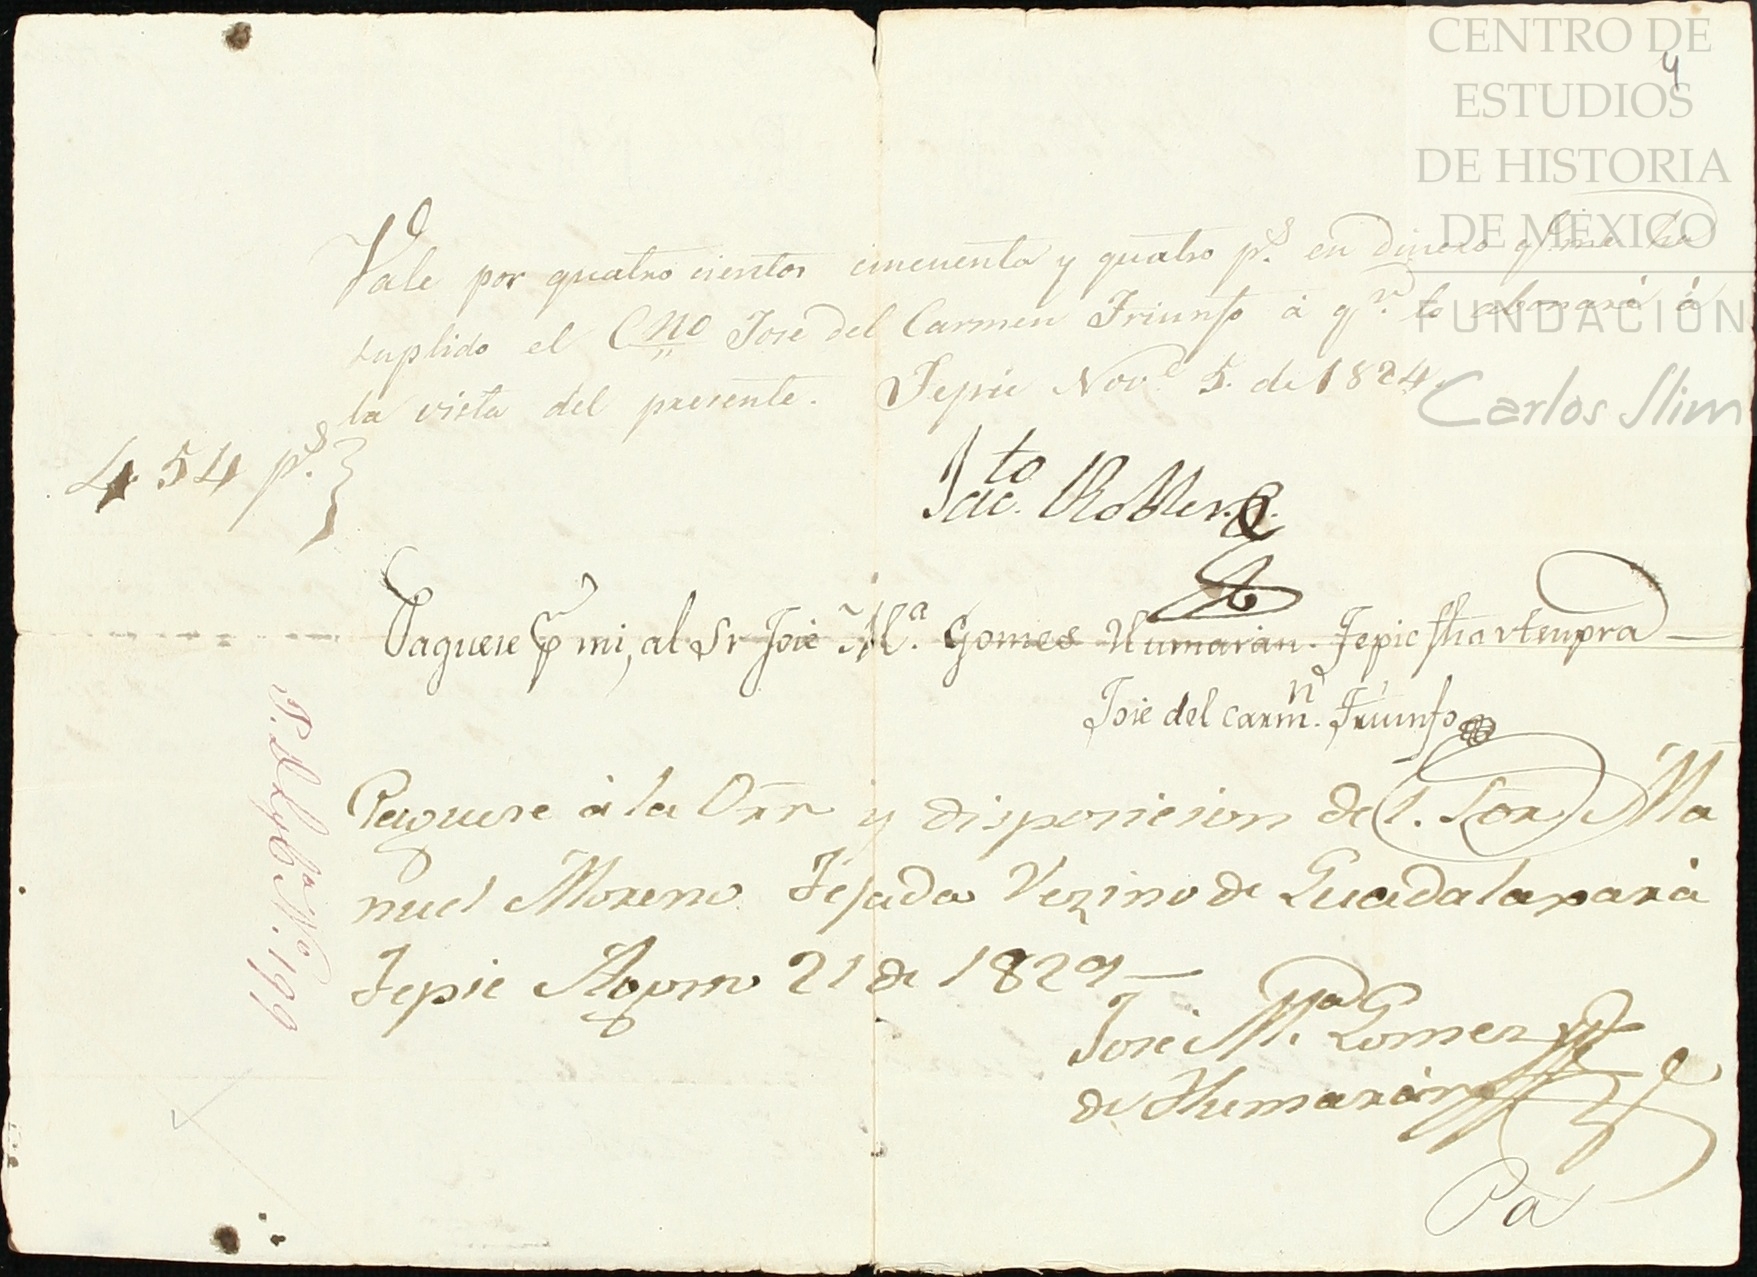 CENTRO DE
ESTUDIOS
DE HISTORIA
DE MÉXICO
FUNDACIÓN
Carlos Slim
4
Vale por quatro cientos cincuenta y quatro p.s en dinero q.e me ha
suplido el Cno Jose del Carmen Triunfo á q.n lo abonará á
la vista del presente. Tepic Nov.e 5. de 1824.
454 p.s }
Jac.to Robles
Paguese p mi, al Sr Jose M.a Gomes Humarán. Tepic
Jose del carm.n Triunfo
Paguese á la Orn y disposicion del. Sor Ma
nuel Moreno Tejada Vezino de Guadalaxara
Tepic Agosto 21 de 1829
José M.a Gomez
de Humarán
Pa
N.o 199